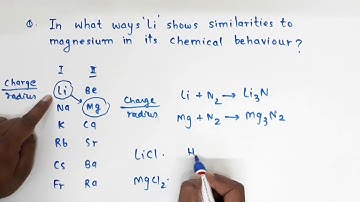 Q. In what ways 'Li' shows similarities to
magnesium in its chemical behaviour?
I II
Charge/radius
Li Be
Na Mg
K Ca
Rb Sr
Cs Ba
Fr Ra
Charge/radius
Li + N₂ → Li₃N
Mg + N₂ → Mg₃N₂
LiCl. H
MgCl₂.